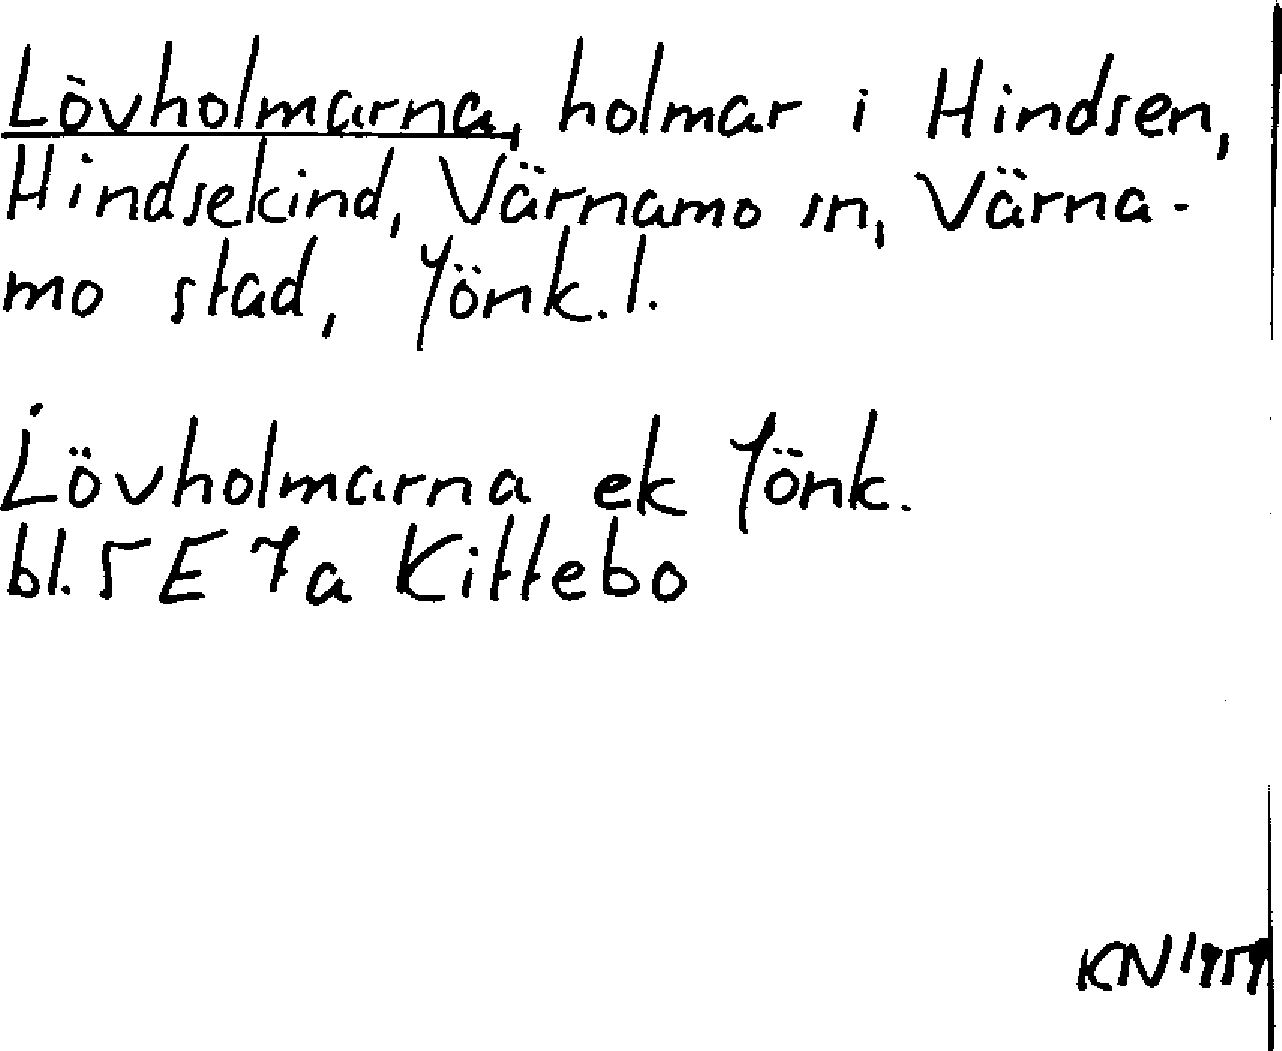 Lövholmarna, holmar i Hindsen,
Hindsekind, Värnamo sn, Värna-
mo stad, Jönk. l.
Lövholmarna ek Jönk.
bl. 5 E 7a Kittebo
KN 1959